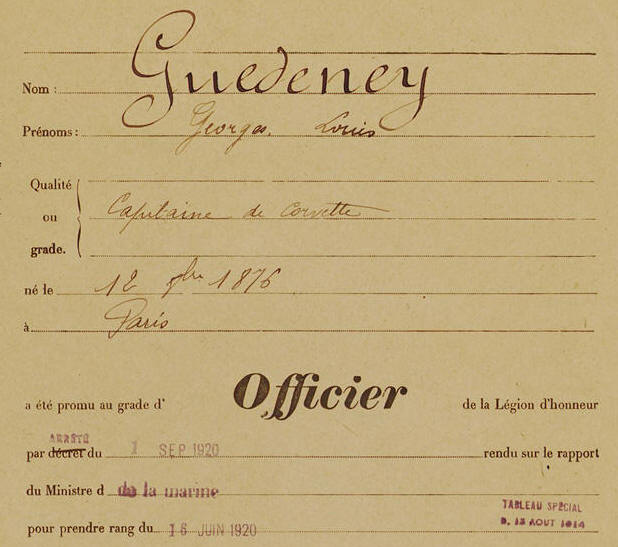 Nom : Guedeney
Prénoms : Georges, Louis
Qualité
ou Capitaine de Corvette
grade.
né le 12 9bre 1876
à Paris
a été promu au grade d' Officier de la Légion d'honneur
ARRÊTÉ
par décret du 1 SEP 1920 rendu sur le rapport
du Ministre d de la marine
TABLEAU SPÉCIAL
D. 13 AOUT 1914
pour prendre rang du 16 JUIN 1920